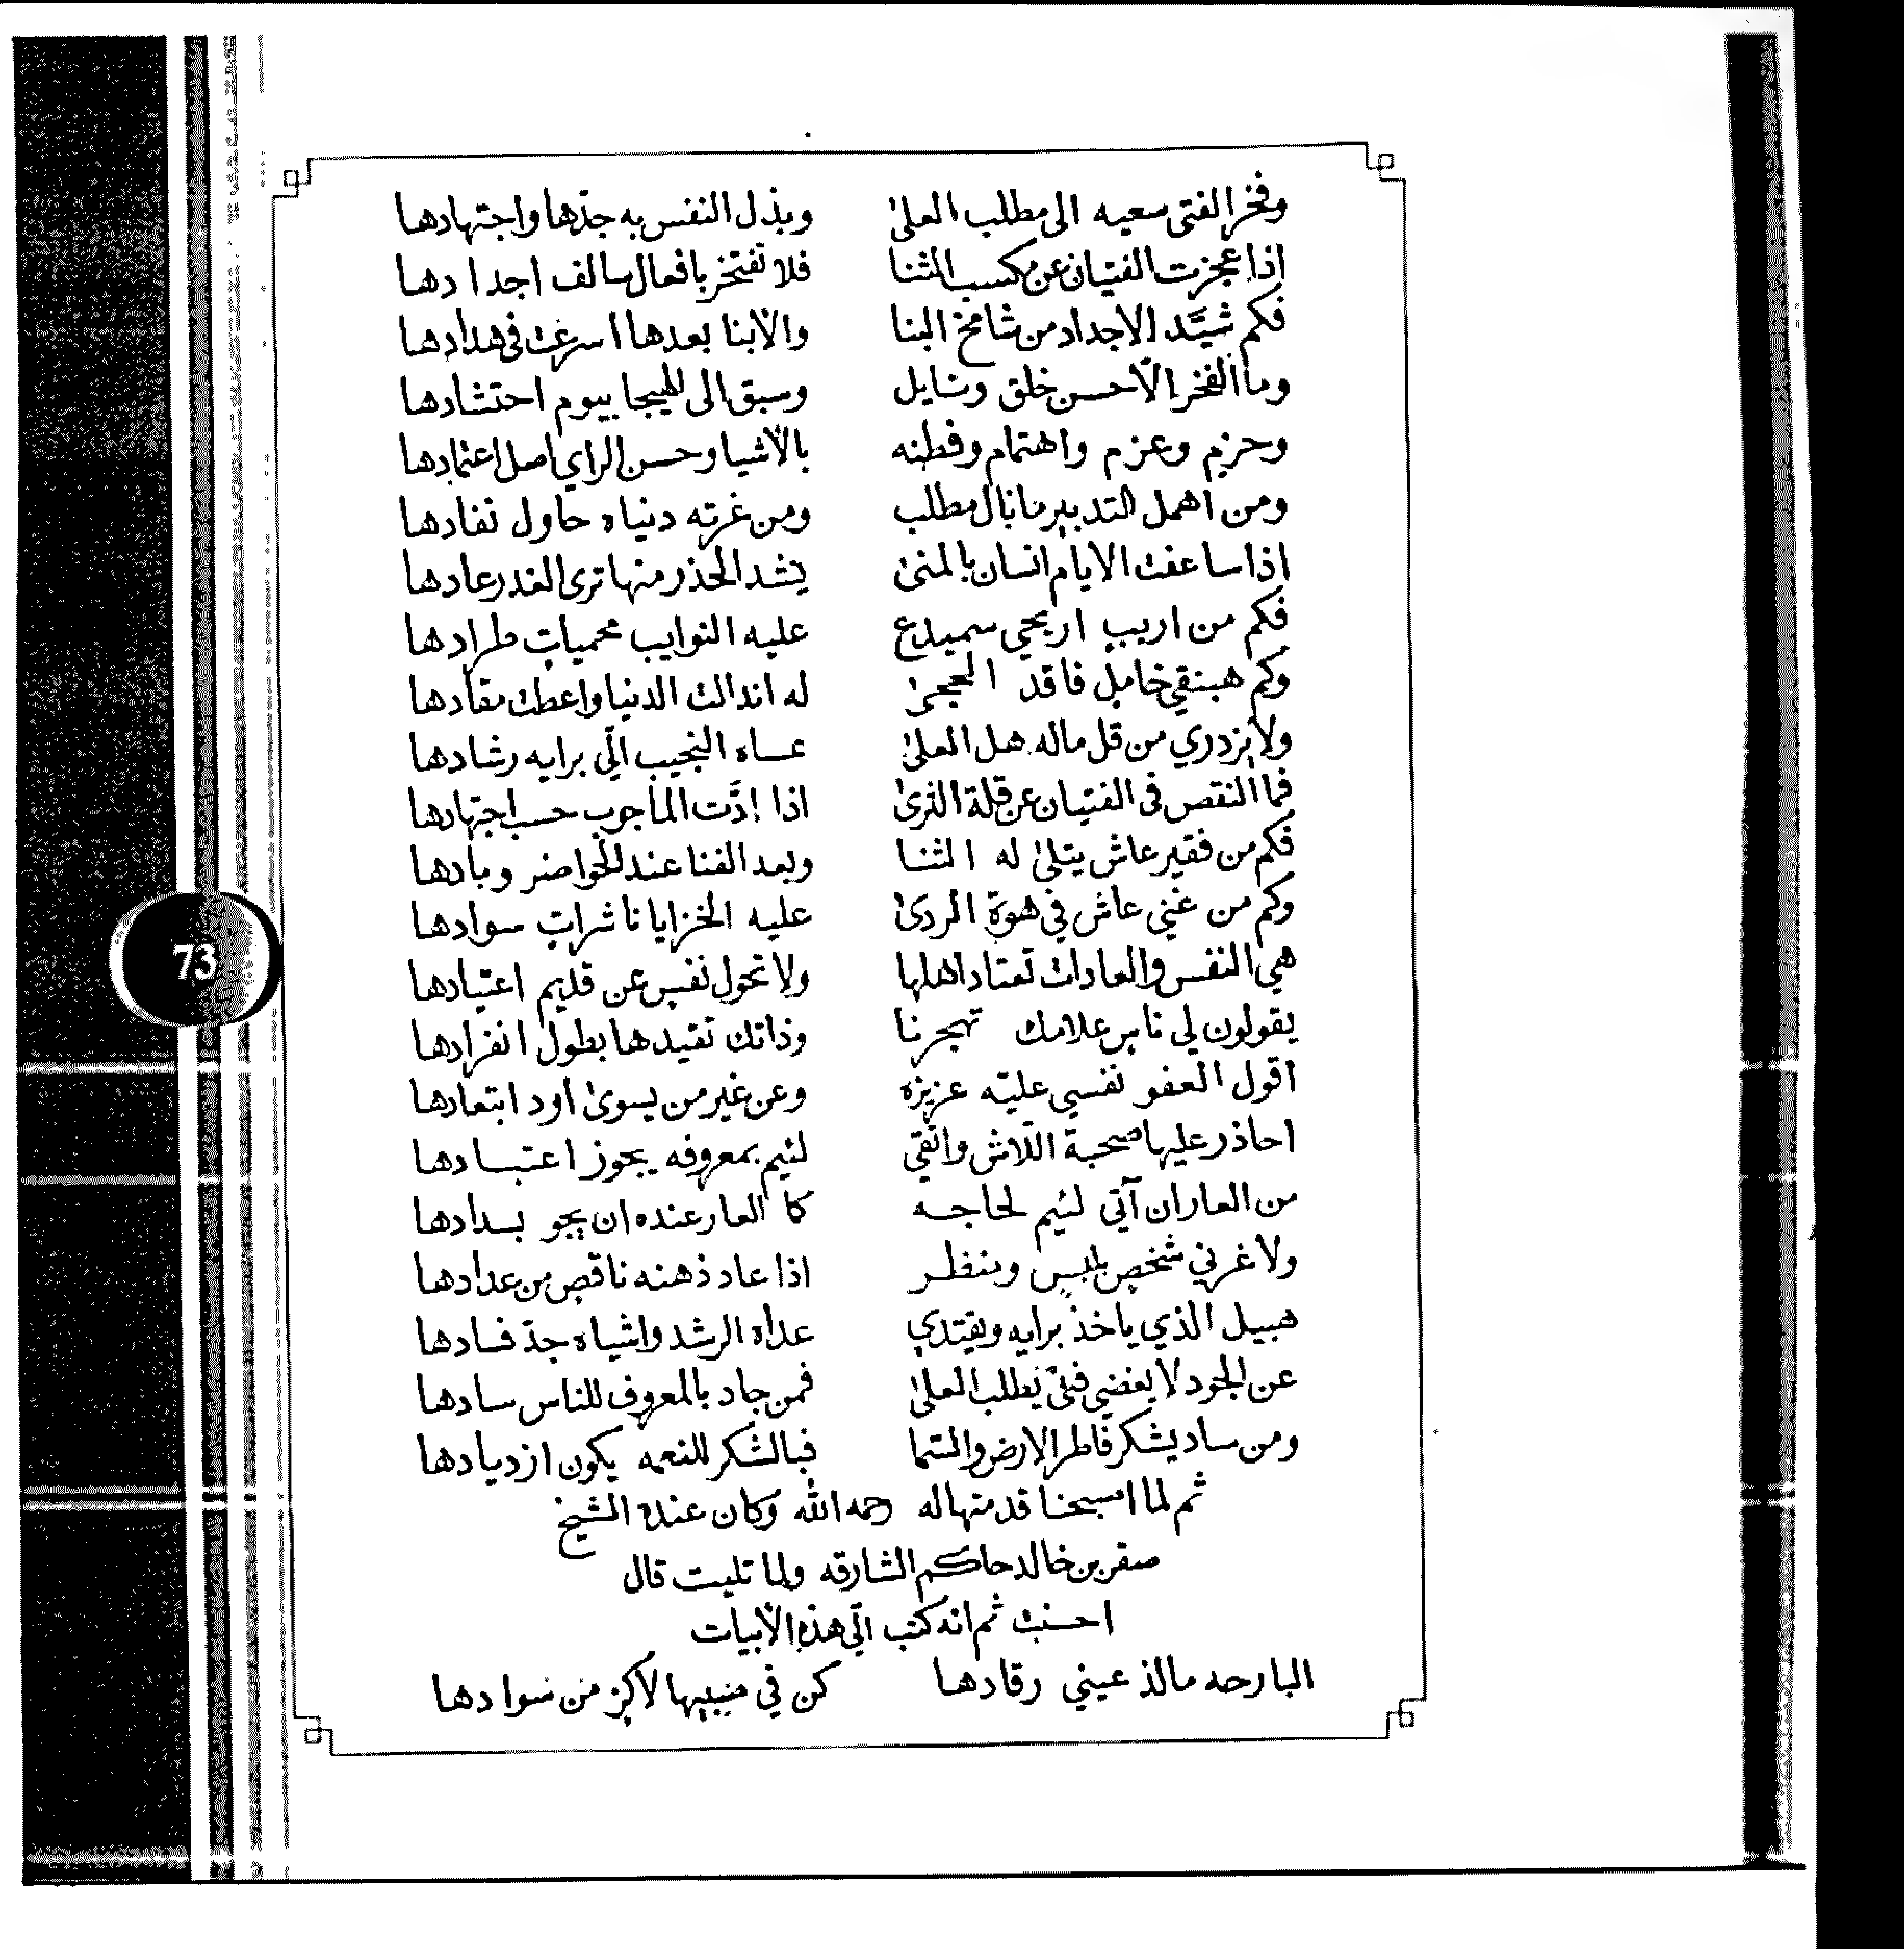 وفخر الفتى سعيه الى مطلب العلىٰ وبذل النفس به جدّها واجتهادها
إذا عجزت الفتيان عن مكسب الثنا فلا تفتخر بافعال سالف اجدادها
فكم شيَّد الاجداد من شامخ البنا والأبنا بعدها اسرعت في هدادها
وما الفخر الّا حسن خلق وشايل وسبق الى الهيجا بيوم احتشادها
وحزمٍ وعزمٍ واهتمام وفطنه بالأشيا وحسن الراي اصل اعتمادها
ومن اهمل التدبير ما نال مطلب ومن غرته دنياه حاول نفادها
إذا ساعفت الايام انسان بالمنىٰ يشد الحذر منها ترى الغدر عادها
فكم من اريبٍ اريحي سميدع عليه النوايب محمياتٍ طرادها
وكم هبنقي خاملٍ فاقد الحجىٰ له اندالت الدنيا واعطت مقادها
ولا يزدري من قل ماله هل العلىٰ عساه النجيب الّي برايه رشادها
فما النقص في الفتيان عن قلة الثرىٰ اذا ادَّت الماجوب حسب اجتهادها
فكم من فقير عاش يتلىٰ له الثنا وبعد الفنا عند الحواضر وبادها
وكم من غني عاش في هوة الردىٰ عليه الخزايا ناشراتٍ سوادها
هي النفس والعادات تعتاد اهلها ولا تحول نفسٍ عن قديم اعتيادها
يقولون لي ناسٍ علامك تهجرنا وذاتك تقيدها بطول انفرادها
اقول العفو نفسي عليّه عزيزه وعن غير من يسوىٰ أود ابتعادها
احاذر عليها صحبة اللاش واتقي لئيم بمعروفه يجوز اعتبادها
من العار ان آتي لئيم لحاجه كما العار عنده ان يجو بسدادها
ولا غرني شخصٍ بلبس ومنظر اذا عاد ذهنه ناقصٍ من عدادها
هبيل الذي ياخذ برايه ويقتدي عداه الرشد واشياه جدّ فسادها
عن الجود لا يغضي فتىً يطلب العلىٰ فمن جاد بالمعروف للناس سادها
ومن ساد يشكر فاطر الارض والسّما فبالشكر للنعمه يكون ازديادها
ثم لما اصبحنا قدمتها له رحمه الله وكان عنده الشيخ
صقر بن خالد حاكم الشارقه ولما تليت قال
احسنت ثم انه كتب الّي هذه الأبيات
البارحه مالذ عيني رقادها كن في منبيها لاكزٍ من سوادها
73